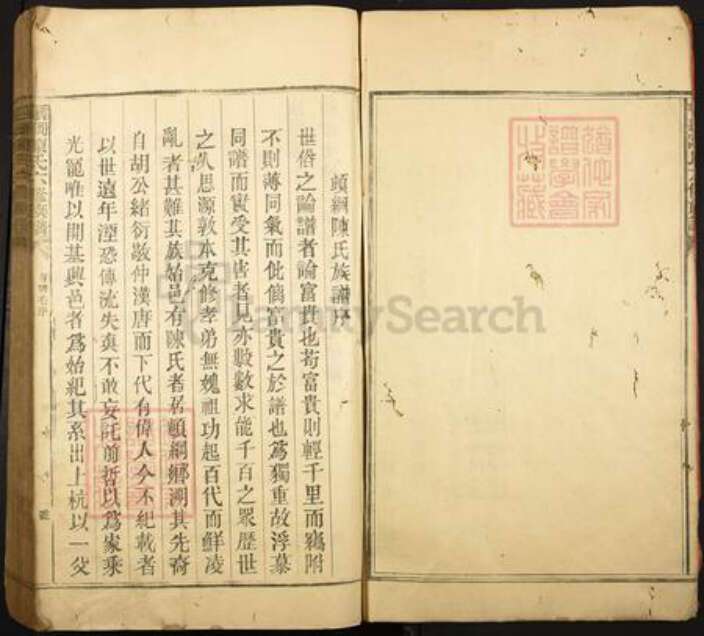 頓綱陳氏族譜序
世俗之論譜者論富貴也苟富貴則輕千里而竊附
不則薄同氣而仳僞富貴之於譜也為獨重故浮慕
同譜而實受其害者見亦數數求能千百之眾歷世
之久思源敦本克修孝弟無媿祖功起百代而鮮凌
亂者甚難其族始邑有陳氏者居頓綱鄉溯其先裔
自胡公緒衍敬仲漢唐而下代有偉人今不紀載者
以世遠年湮恐傳流失真不敢妄託前哲以為家乘
光寵唯以開基興邑者為始紀其系出上杭以一父
FamilySearch